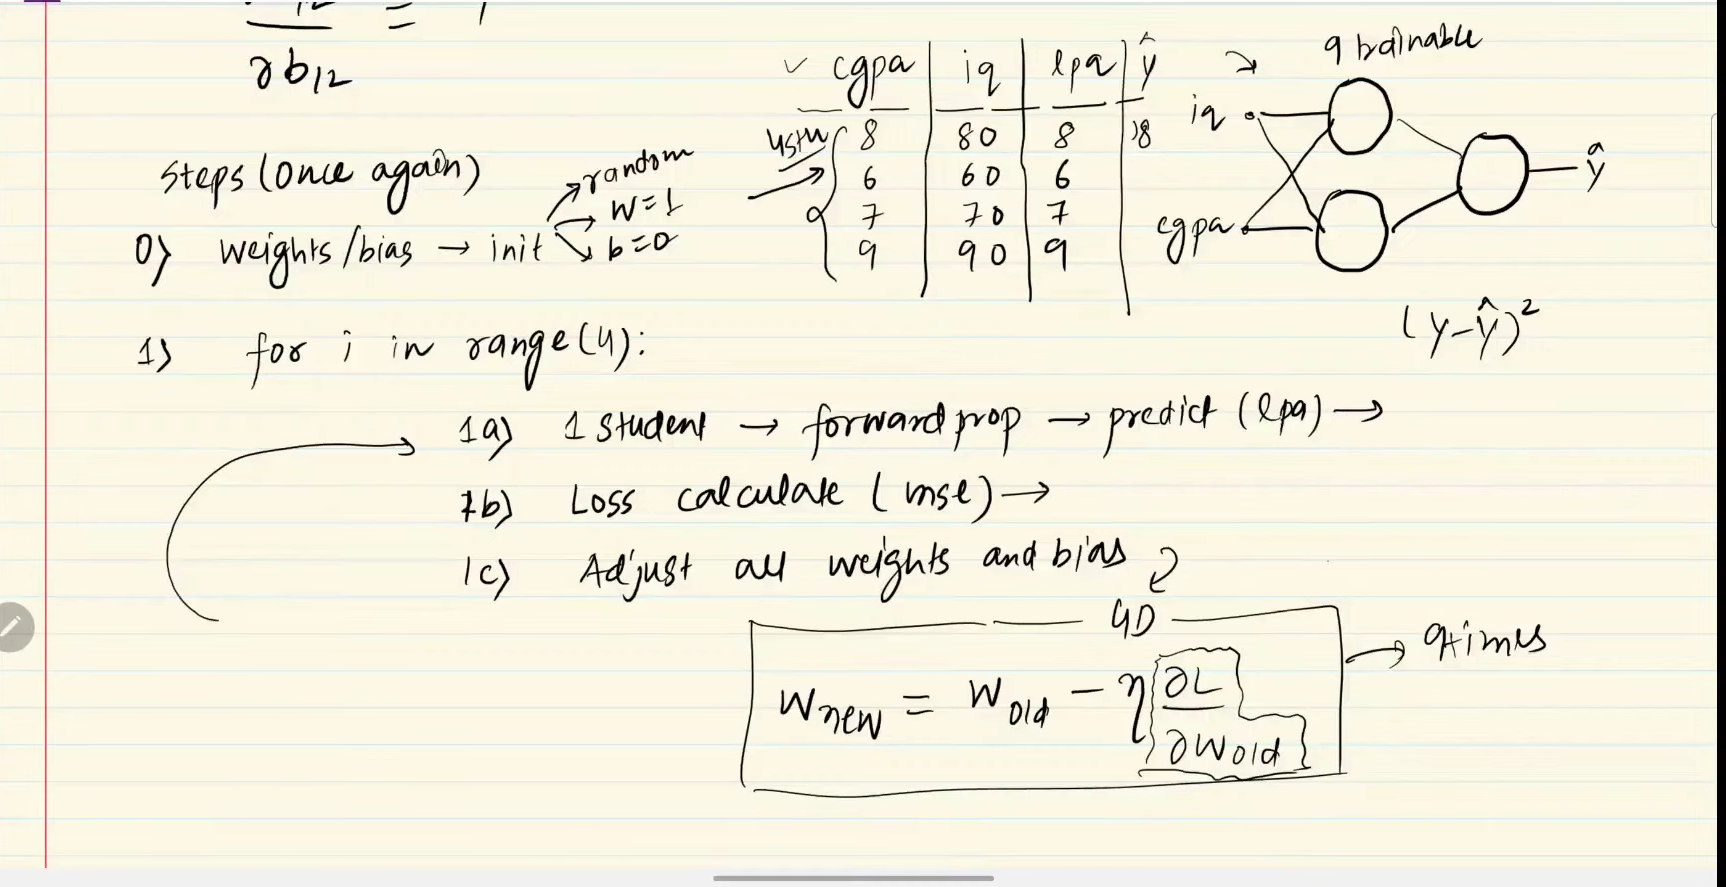 ∂b12
=
Steps (once again)
0) weights/bias → init → random
w=1
b=0
✓ cgpa | iq | lpa | ŷ
4stu
8 | 80 | 8 | 18
6 | 60 | 6
7 | 70 | 7
9 | 90 | 9
9 trainable
iq
cgpa
ŷ
(y-ŷ)²
1) for i in range(4):
1a) 1 student → forward prop → predict (lpa) →
1b) Loss calculate (mse) →
1c) Adjust all weights and bias
GD
Wnew = Wold - η ∂L/∂Wold
→ 9times